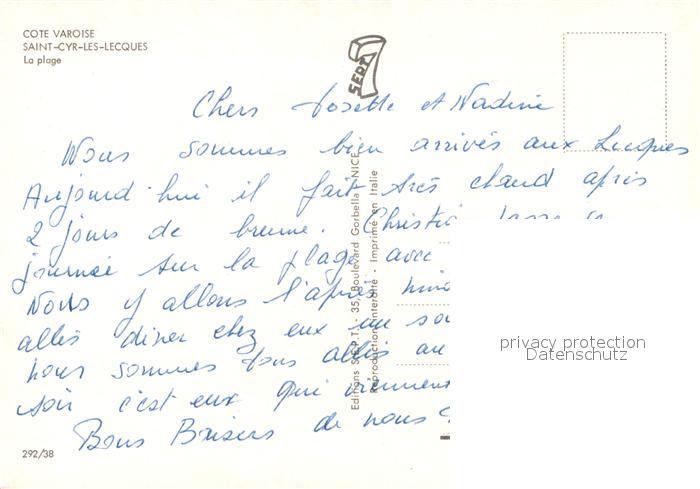 COTE VAROISE
SAINT-CYR-LES-LECQUES
La plage
SEPT
Chers Josette et Nadine
Nous sommes bien arrivés aux Lecques
Aujourd'hui il fait très chaud après
2 jours de brume. Christia passe sa
journée sur la plage avec
Nous y allons l'après
allés diner chez eux un so
nous sommes tous allés au
soir c'est eux qui viennent
Bons Baisers de nous
Editions S.E.P.T. - 35, Boulevard Gorbella - NICE
Reproduction interdite - Imprimé en Italie
privacy protection
Datenschutz
292/38